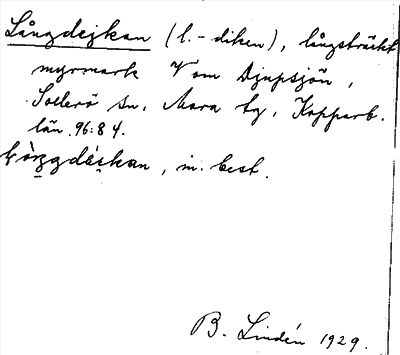 Långdejkan (l. - diken), långsträckt
myrmark V om Djupsjön,
Sollerö sn, Mora tg, Kopparb.
län. 96:84.
dèi̯kan, m. best.
B. Lindén 1929.